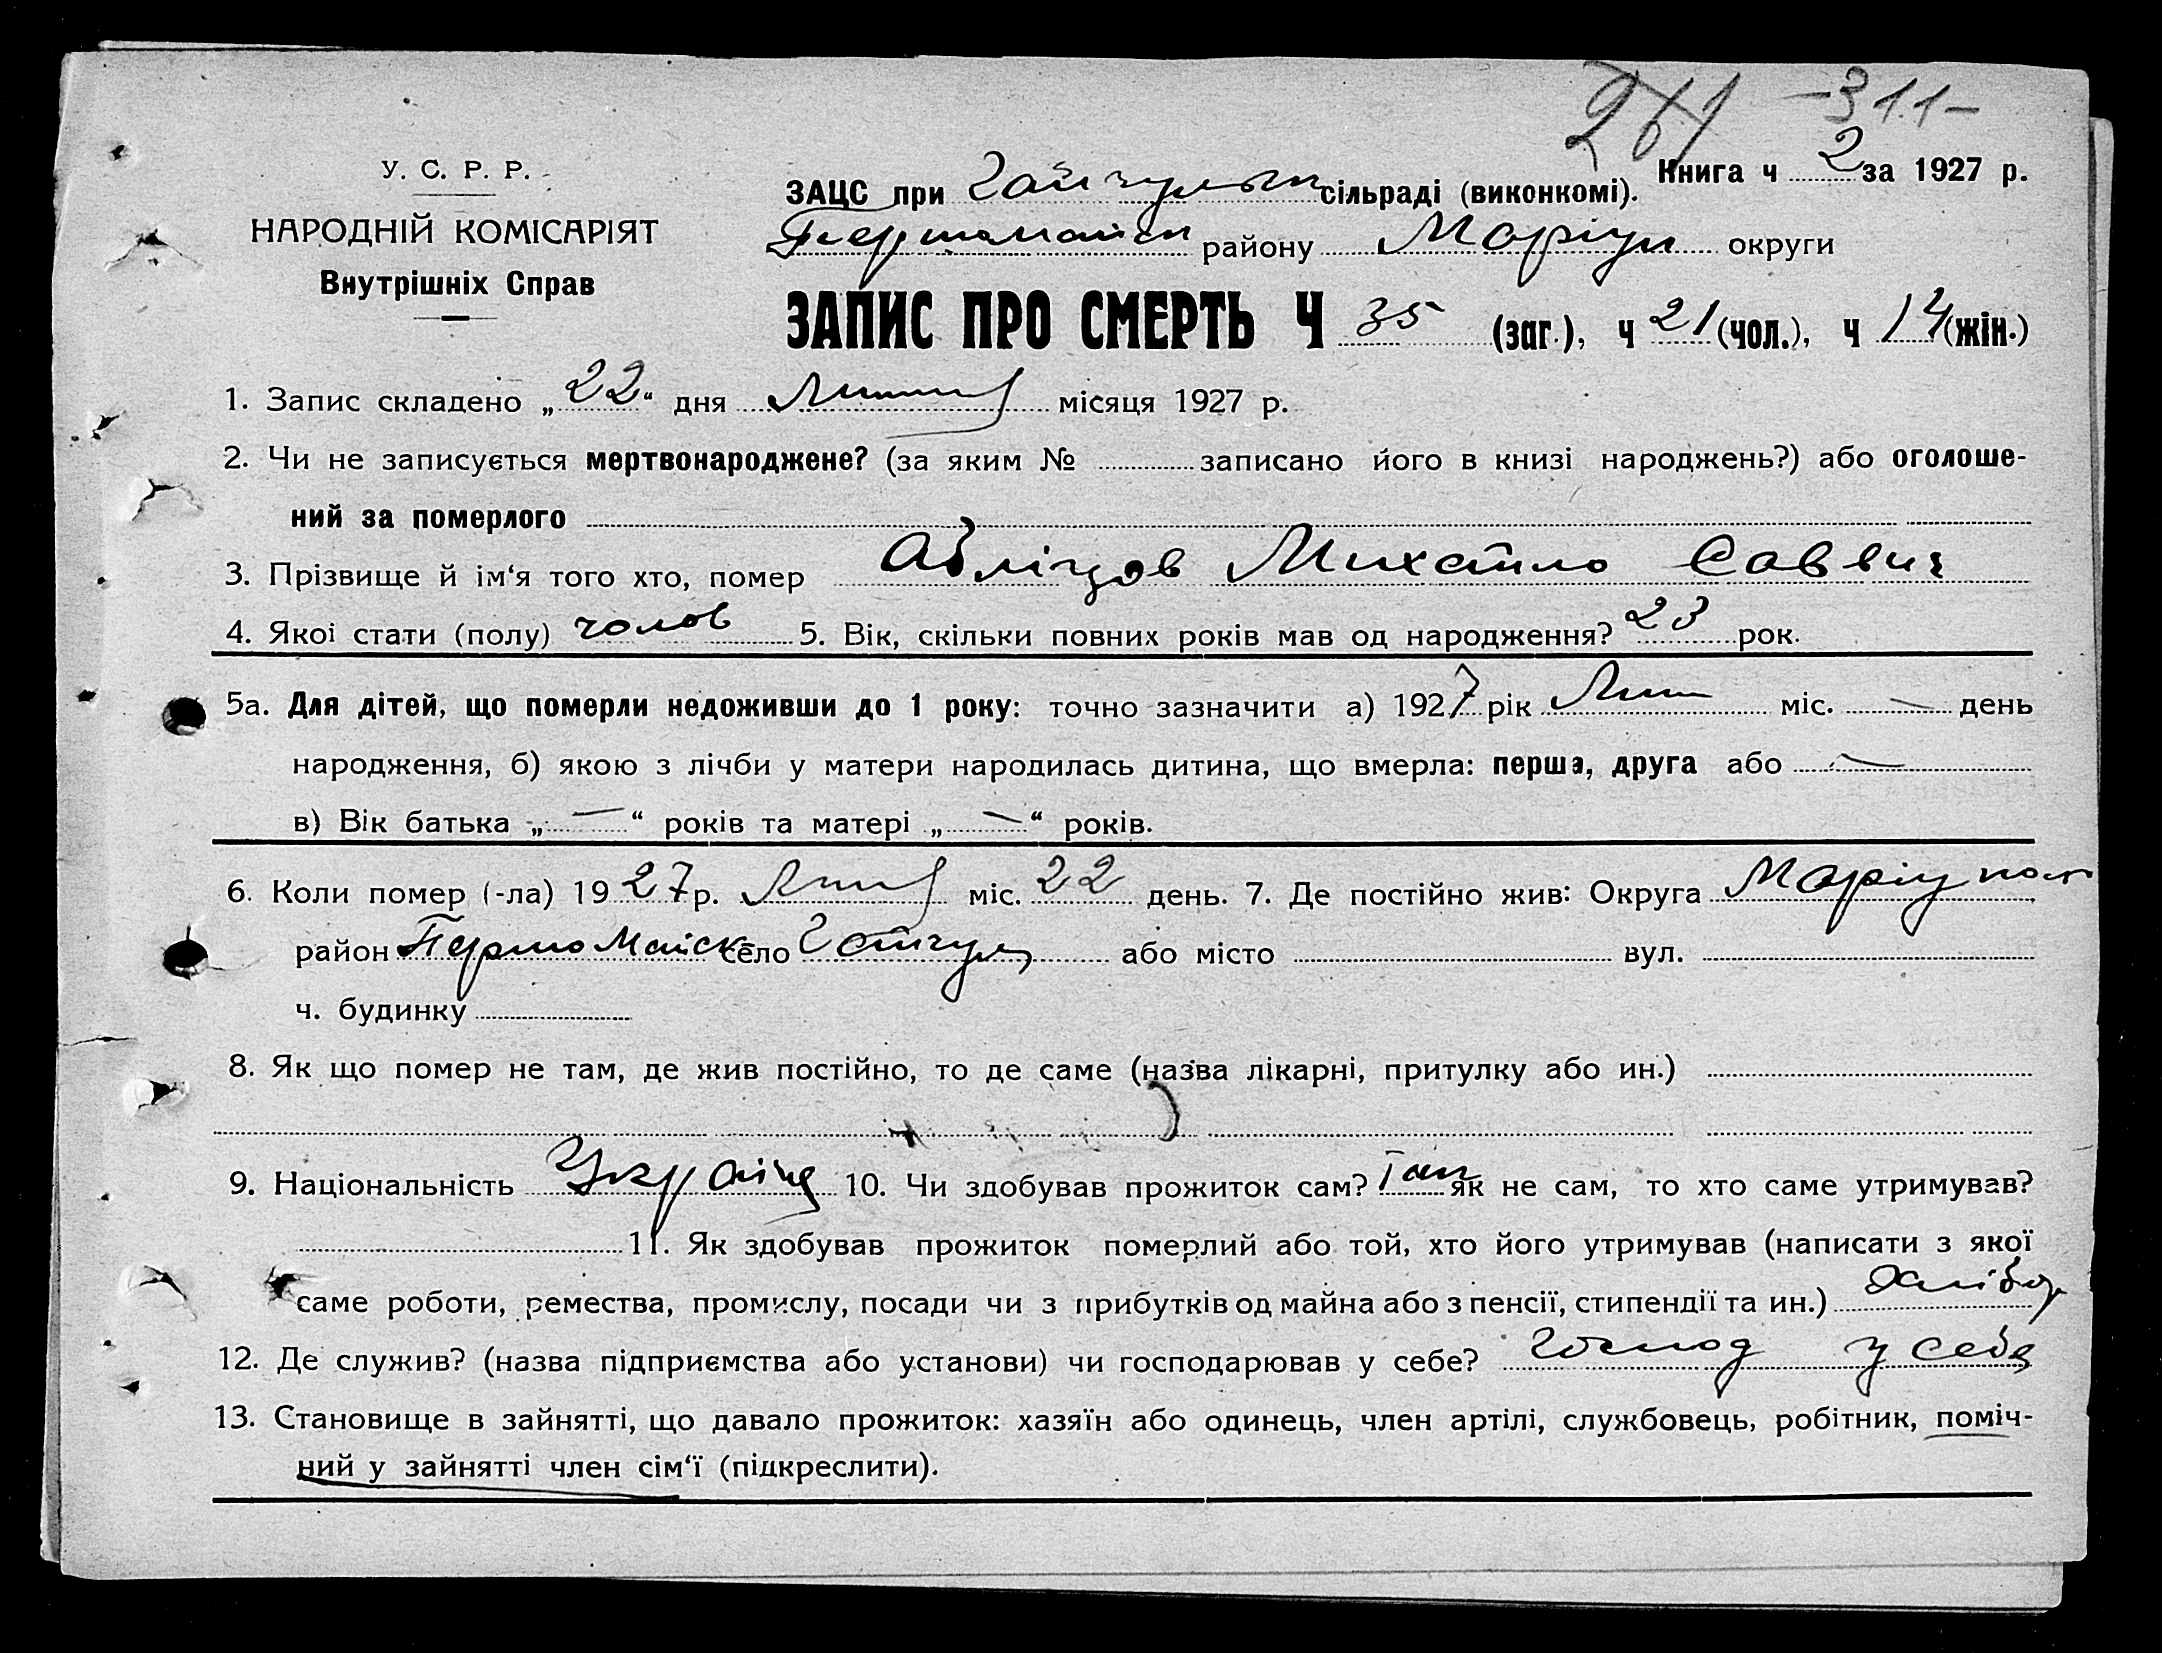 261 — 311 —
У. С. Р. Р. Книга ч 2 за 1927 р.
ЗАЦС при Гайчульск сільраді (виконкомі).
НАРОДНІЙ КОМІСАРІЯТ Першомайськ району Маріуп округи
Внутрішніх Справ
ЗАПИС ПРО СМЕРТЬ Ч 35 (заг.), ч 21 (чол.), ч 14 (жін.)
1. Запис складено „22“ дня Липня місяця 1927 р.
2. Чи не записується мертвонароджене? (за яким № записано його в книзі народжень?) або оголоше-
ний за померлого
3. Прізвище й ім‘я того хто, помер Абліцов Михайло Саввич
4. Якої стати (полу) чолов 5. Вік, скільки повних років мав од народження? 23 рок.
5а. Для дітей, що померли недоживши до 1 року: точно зазначити а) 1927 рік Лип міс. — день
народження, б) якою з лічби у матери народилась дитина, що вмерла: перша, друга або —
в) Вік батька „—“ років та матері „—“ років.
6. Коли помер (-ла) 1927 р. Липня міс. 22 день. 7. Де постійно жив: Округа Маріупол
район Первомайськ село Гайчул або місто вул.
ч. будинку
8. Як що помер не там, де жив постійно, то де саме (назва лікарні, притулку або ин.)
9. Національність Україн 10. Чи здобував прожиток сам? Так як не сам, то хто саме утримував?
11. Як здобував прожиток померлий або той, хто його утримував (написати з якої
саме роботи, ремества, промислу, посади чи з прибутків од майна або з пенсії, стипендії та ин.) Хлібор
12. Де служив? (назва підприємства або установи) чи господарював у себе? Господ у себе
13. Становище в зайнятті, що давало прожиток: хазяїн або одинець, член артілі, службовець, робітник, поміч-
ний у зайнятті член сім‘ї (підкреслити).